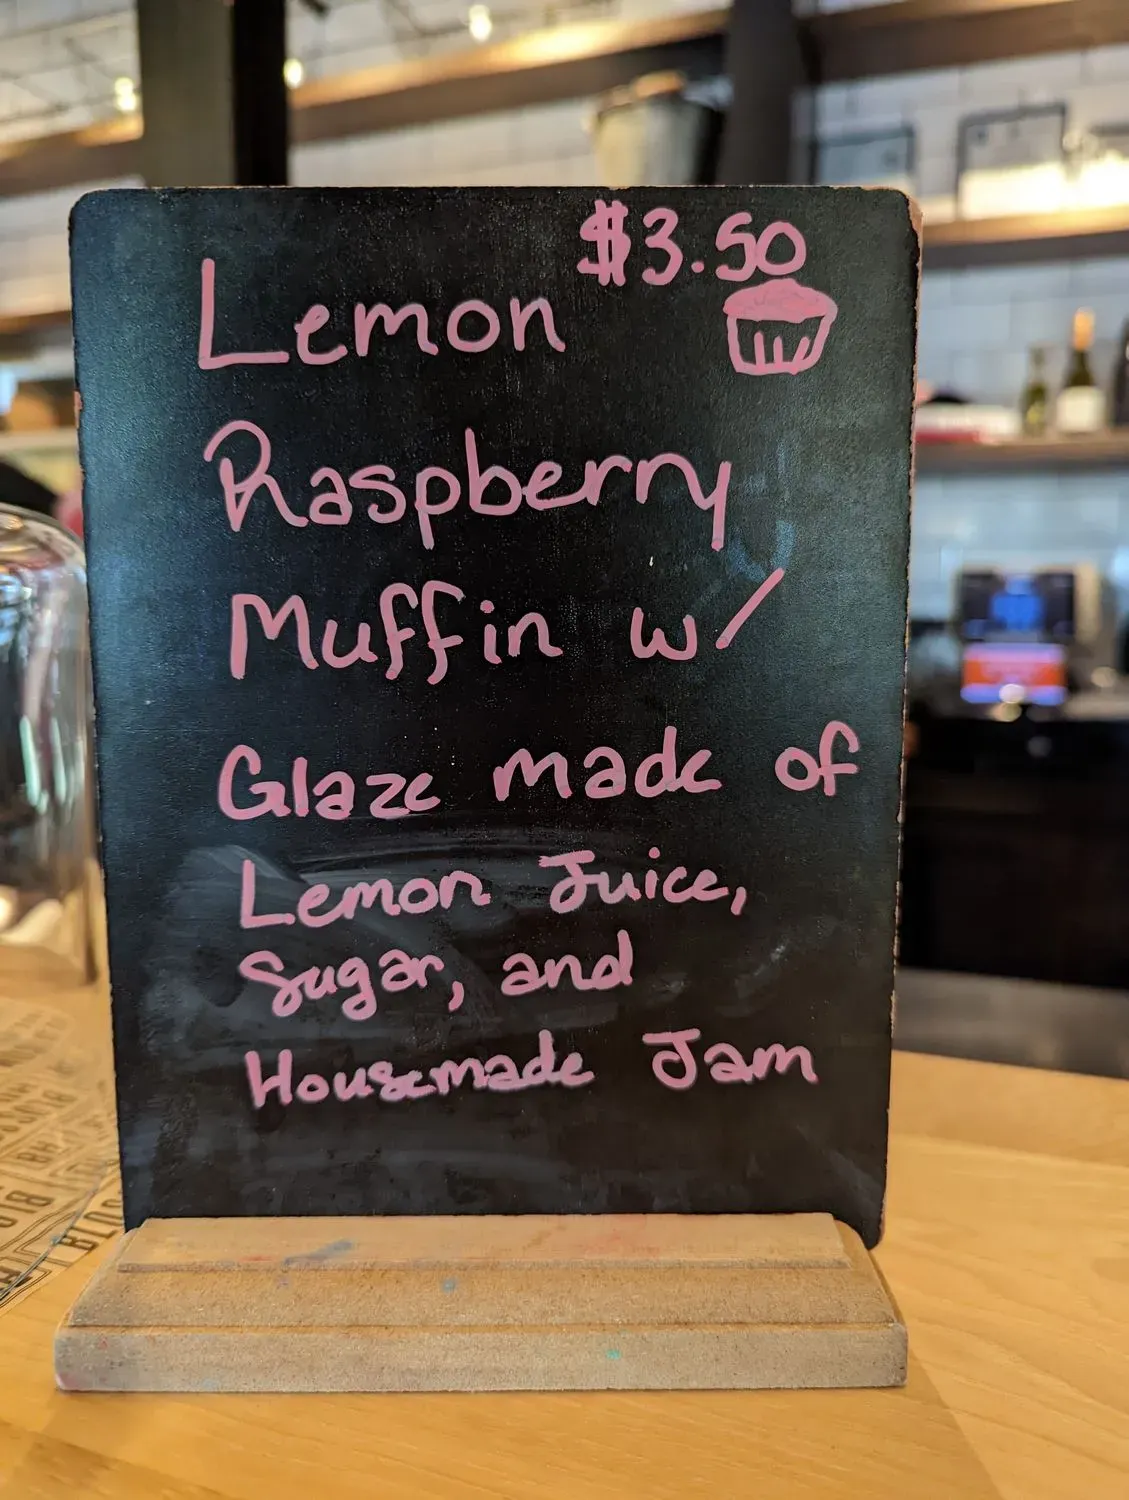 $3.50
Lemon
Raspberry
Muffin w/
Glaze made of
Lemon Juice,
Sugar, and
Housemade Jam